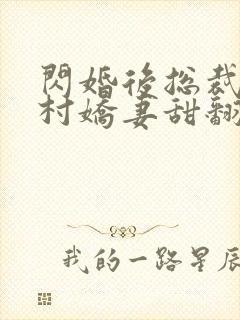 閃婚後總裁
村嬌妻甜翻
我的一路星辰